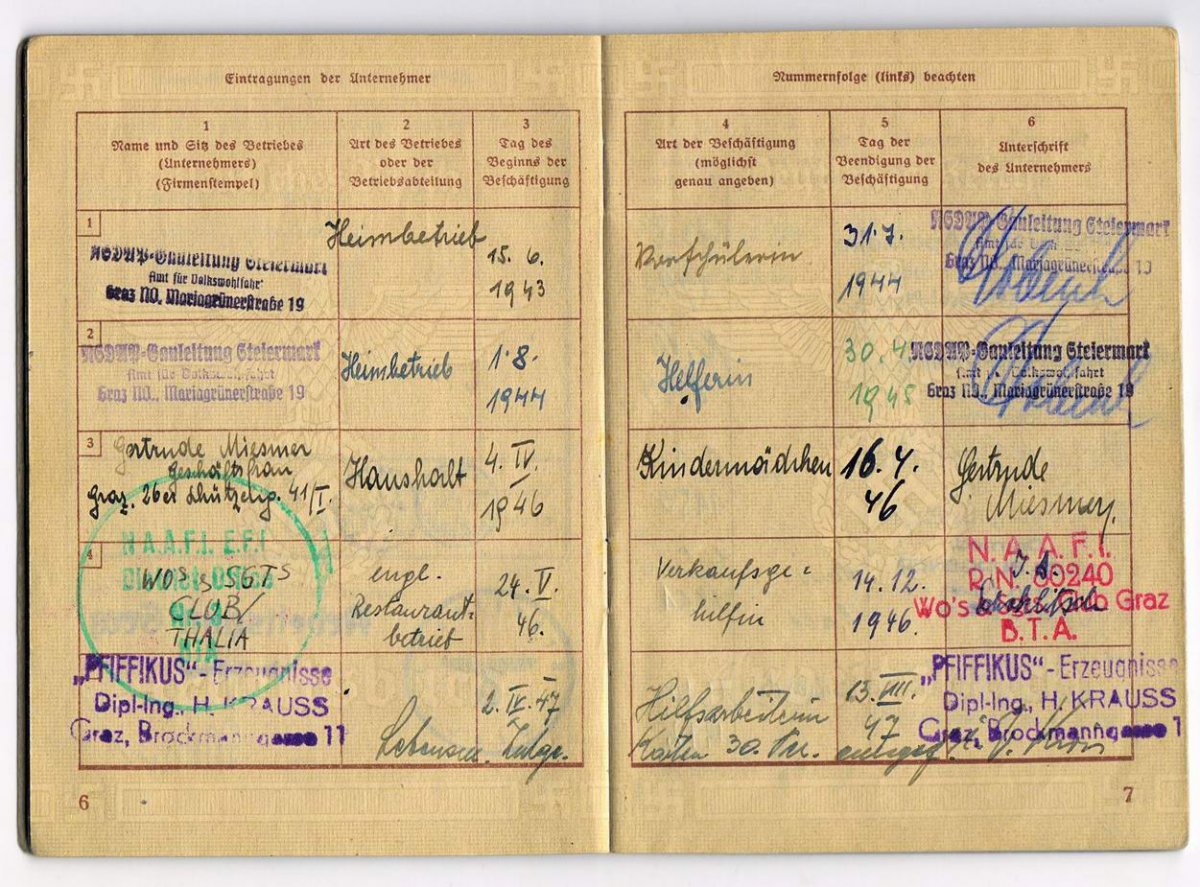 Eintragungen der Unternehmer
1
Name und Sitz des Betriebes
(Unternehmers)
(Firmenstempel)
2
Art des Betriebes
oder der
Betriebsabteilung
3
Tag des
Beginns der
Beschäftigung
1
NSDAP-Gauleitung Steiermark
Amt für Volkswohlfahrt
Graz NO, Mariagrünerstraße 19
Heimbetrieb
15. 6.
1943
2
NSDAP-Gauleitung Steiermark
Amt für Volkswohlfahrt
Graz NO., Mariagrünerstraße 19
Heimbetrieb
1. 8.
1944
3
Gertrude Miesmer
Geschäftsfrau
Graz. 26er Schützeng. 41/I.
Haushalt
4. IV.
1946
4
N.A.A.F.I. E.F.I
WOS & SGTS
CLUB/
THALIA
engl.
Restaurant-
betrieb
24. V.
46.
„PFIFFIKUS"-Erzeugnisse
Dipl-Ing., H. KRAUSS
Graz, Brockmanngasse 11
2. IV. 47
6
Nummernfolge (links) beachten
4
Art der Beschäftigung
(möglichst
genau angeben)
5
Tag der
Beendigung der
Beschäftigung
6
Unterschrift
des Unternehmers
Vorschülerin
31. 7.
1944
NSDAP-Gauleitung Steiermark
Amt für
Graz NO., Mariagrünerstraße 19
Helferin
30. 4
1945
NSDAP-Gauleitung Steiermark
Amt für Volkswohlfahrt
Graz NO., Mariagrünerstraße 19
Kindermädchen
16. 4.
46
Gertrude
Miesmer.
Verkaufsge-
hilfin
14. 12.
1946.
N.A.A.F.I.
R.N. 60240
Wo's Graz
B.T.A.
Hilfsarbeiterin
13. VIII.
47
„PFIFFIKUS"-Erzeugnisse
Dipl-Ing., H. KRAUSS
Graz, Brockmanngasse 11
Karten 30.
7